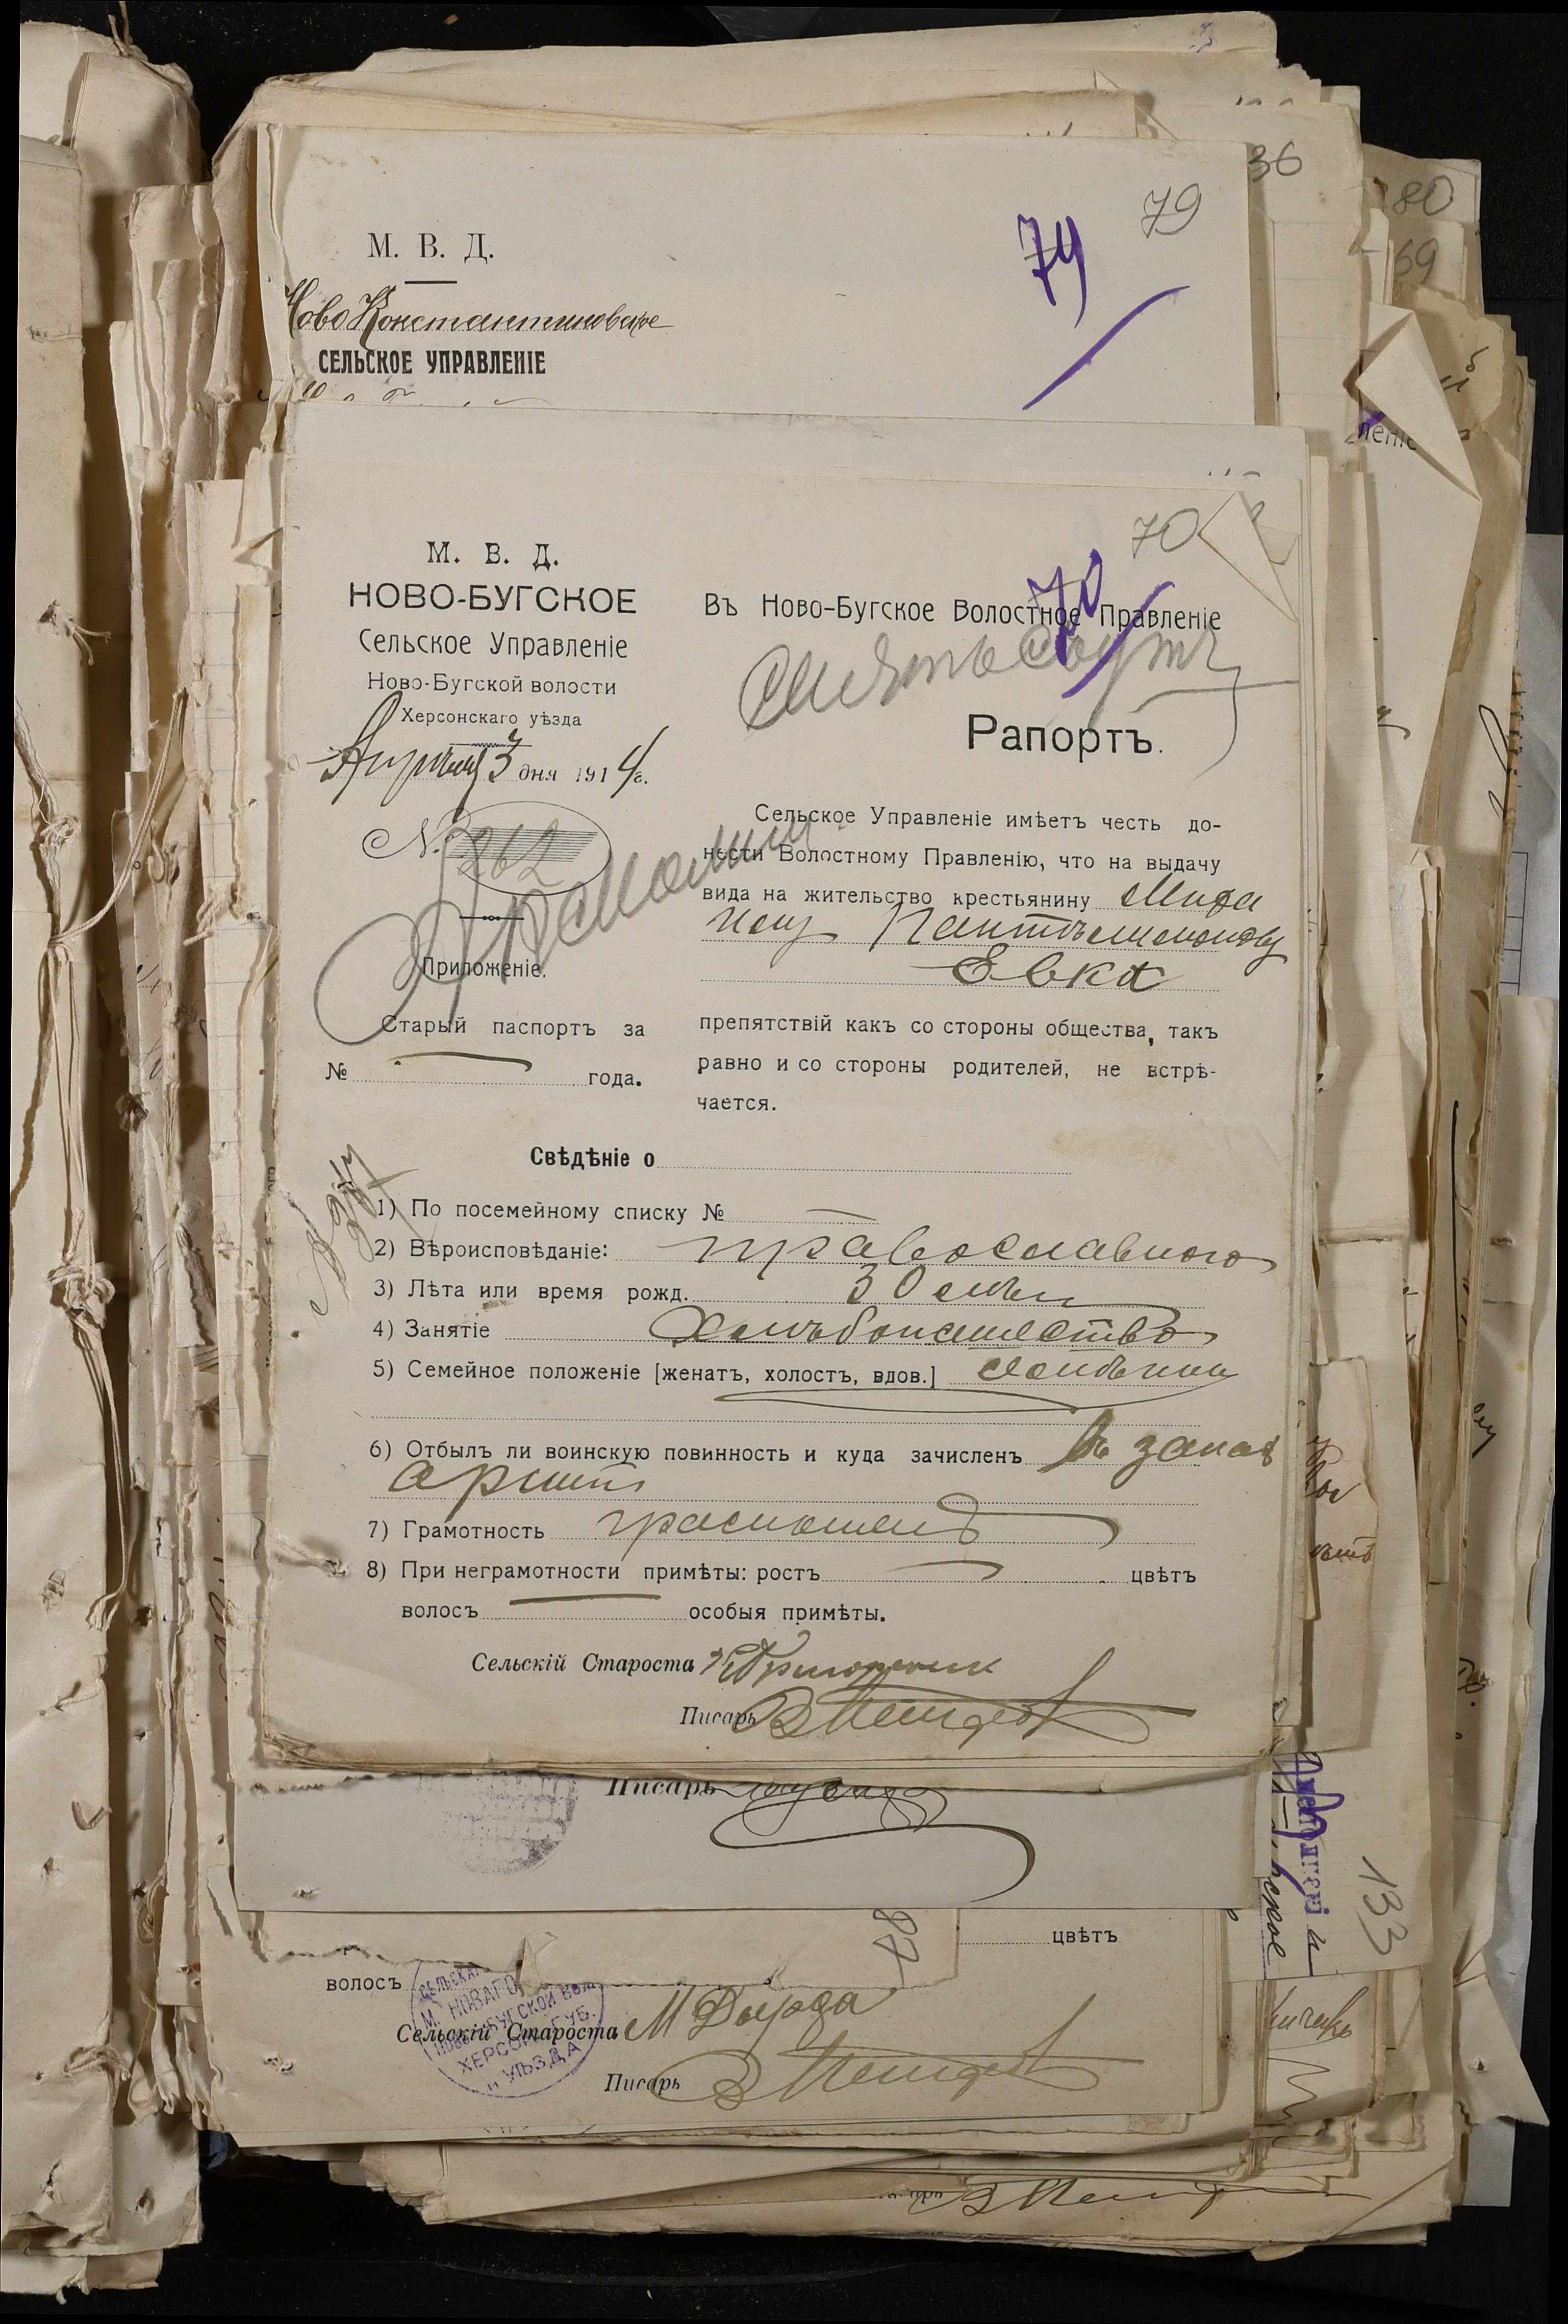 36
80
79
79
69
М. В. Д.
Ново Константиновское
СЕЛЬСКОЕ УПРАВЛЕНІЕ
леніе
70
М. В. Д.
НОВО-БУГСКОЕ
Сельское Управленіе
Ново-Бугской волости
Херсонскаго уѣзда
Апрѣля 3 дня 1914 г.
№ 262
Приложеніе.
Старый паспортъ за
№ года.
70
Въ Ново-Бугское Волостное Правленіе
Рапортъ.
Сельское Управленіе имѣетъ честь до-
нести Волостному Правленію, что на выдачу
вида на жительство крестьянину Мифа
Пантелимонову
Евка
препятствій какъ со стороны общества, такъ
равно и со стороны родителей, не встрѣ-
чается.
Свѣдѣніе о
1) По посемейному списку №
2) Вѣроисповѣданіе: православного
3) Лѣта или время рожд. 30 лѣтъ
4) Занятіе Хлѣбопашество
5) Семейное положеніе [женатъ, холостъ, вдов.]
6) Отбылъ ли воинскую повинность и куда зачисленъ въ запас
арміи
7) Грамотность грамотенъ
8) При неграмотности примѣты: ростъ цвѣтъ
волосъ особыя примѣты.
Сельскій Староста
Писарь
Писарь
97
133
цвѣтъ
волосъ
Сельскій Староста М Дырда
Писарь